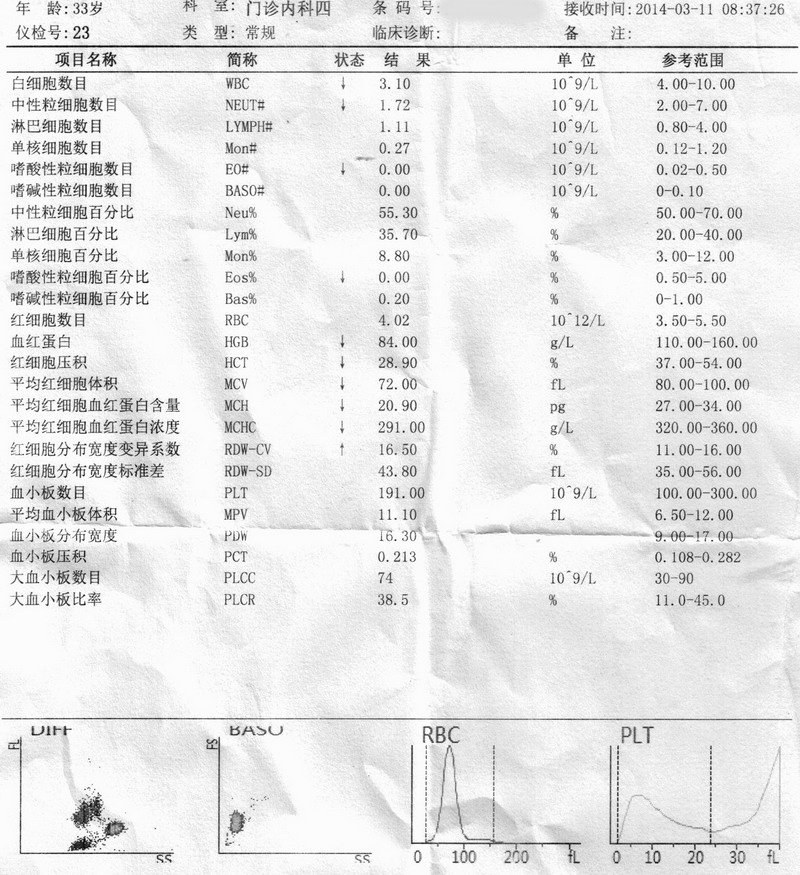 年 龄:33岁 科 室:门诊内科四 条 码 号: 接收时间:2014-03-11 08:37:26
仪检号:23 类 型:常规 临床诊断: 备 注:
项目名称 简称 状态 结 果 单 位 参考范围
白细胞数目 WBC ↓ 3.10 10^9/L 4.00-10.00
中性粒细胞数目 NEUT# ↓ 1.72 10^9/L 2.00-7.00
淋巴细胞数目 LYMPH# 1.11 10^9/L 0.80-4.00
单核细胞数目 Mon# 0.27 10^9/L 0.12-1.20
嗜酸性粒细胞数目 EO# ↓ 0.00 10^9/L 0.02-0.50
嗜碱性粒细胞数目 BASO# 0.00 10^9/L 0-0.10
中性粒细胞百分比 Neu% 55.30 % 50.00-70.00
淋巴细胞百分比 Lym% 35.70 % 20.00-40.00
单核细胞百分比 Mon% 8.80 % 3.00-12.00
嗜酸性粒细胞百分比 Eos% ↓ 0.00 % 0.50-5.00
嗜碱性粒细胞百分比 Bas% 0.20 % 0-1.00
红细胞数目 RBC 4.02 10^12/L 3.50-5.50
血红蛋白 HGB ↓ 84.00 g/L 110.00-160.00
红细胞压积 HCT ↓ 28.90 % 37.00-54.00
平均红细胞体积 MCV ↓ 72.00 fL 80.00-100.00
平均红细胞血红蛋白含量 MCH ↓ 20.90 pg 27.00-34.00
平均红细胞血红蛋白浓度 MCHC ↓ 291.00 g/L 320.00-360.00
红细胞分布宽度变异系数 RDW-CV ↑ 16.50 % 11.00-16.00
红细胞分布宽度标准差 RDW-SD 43.80 fL 35.00-56.00
血小板数目 PLT 191.00 10^9/L 100.00-300.00
平均血小板体积 MPV 11.10 fL 6.50-12.00
血小板分布宽度 PDW 16.30 9.00-17.00
血小板压积 PCT 0.213 % 0.108-0.282
大血小板数目 PLCC 74 10^9/L 30-90
大血小板比率 PLCR 38.5 % 11.0-45.0
DIFF BASO RBC PLT
FL FS
SS SS 0 100 200 fL 0 10 20 30 fL